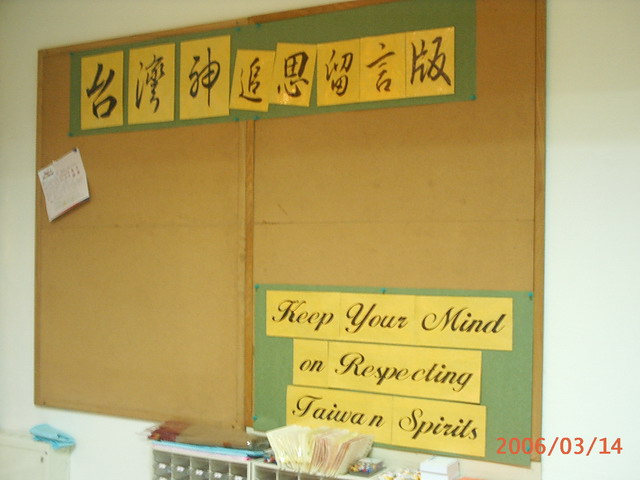 台灣神追思留言版
Keep Your Mind
on Respecting
Taiwan Spirits
2006/03/14